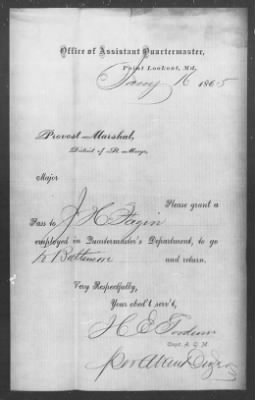 Office of Assistant Quartermaster,
Point Lookout, Md,
Jany 16 1865
Provost Marshal,
District of St. Marys,
Major
Please grant a
Pass to J H Fagin
employed in Quartermaster's Department, to go
to Baltimore and return.
Very Respectfully,
Your obed't serv't,
H E
Capt. A. Q. M.